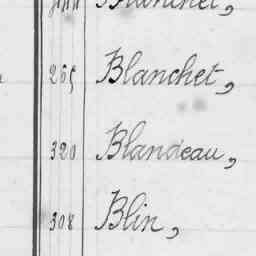 Blanchet,
265 Blanchet,
320 Blandeau,
308 Blin,